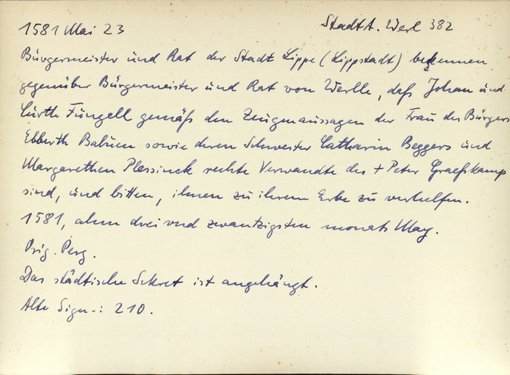 1581 Mai 23
StadtA. Werl 382
Bürgermeister und Rat der Stadt Lippe (Lippstadt) bekennen
gegenüber Bürgermeister und Rat von Werlle, daß Johan und
Cürth Füngell gemäß den Zeugenaussagen der Frau des Bürgers
Ebberth Babüen sowie deren Schwester Catharin Beggers und
Margarethen Plessinck rechte Verwandte des + Peter Graefkamp
sind, und bitten, ihnen zu ihrem Erbe zu verhelfen.
1581, ahm drei vnd zwantzigsten monats May.
Orig. Perg.
Das städtische Sekret ist angehängt.
Alte Sign.: 210.